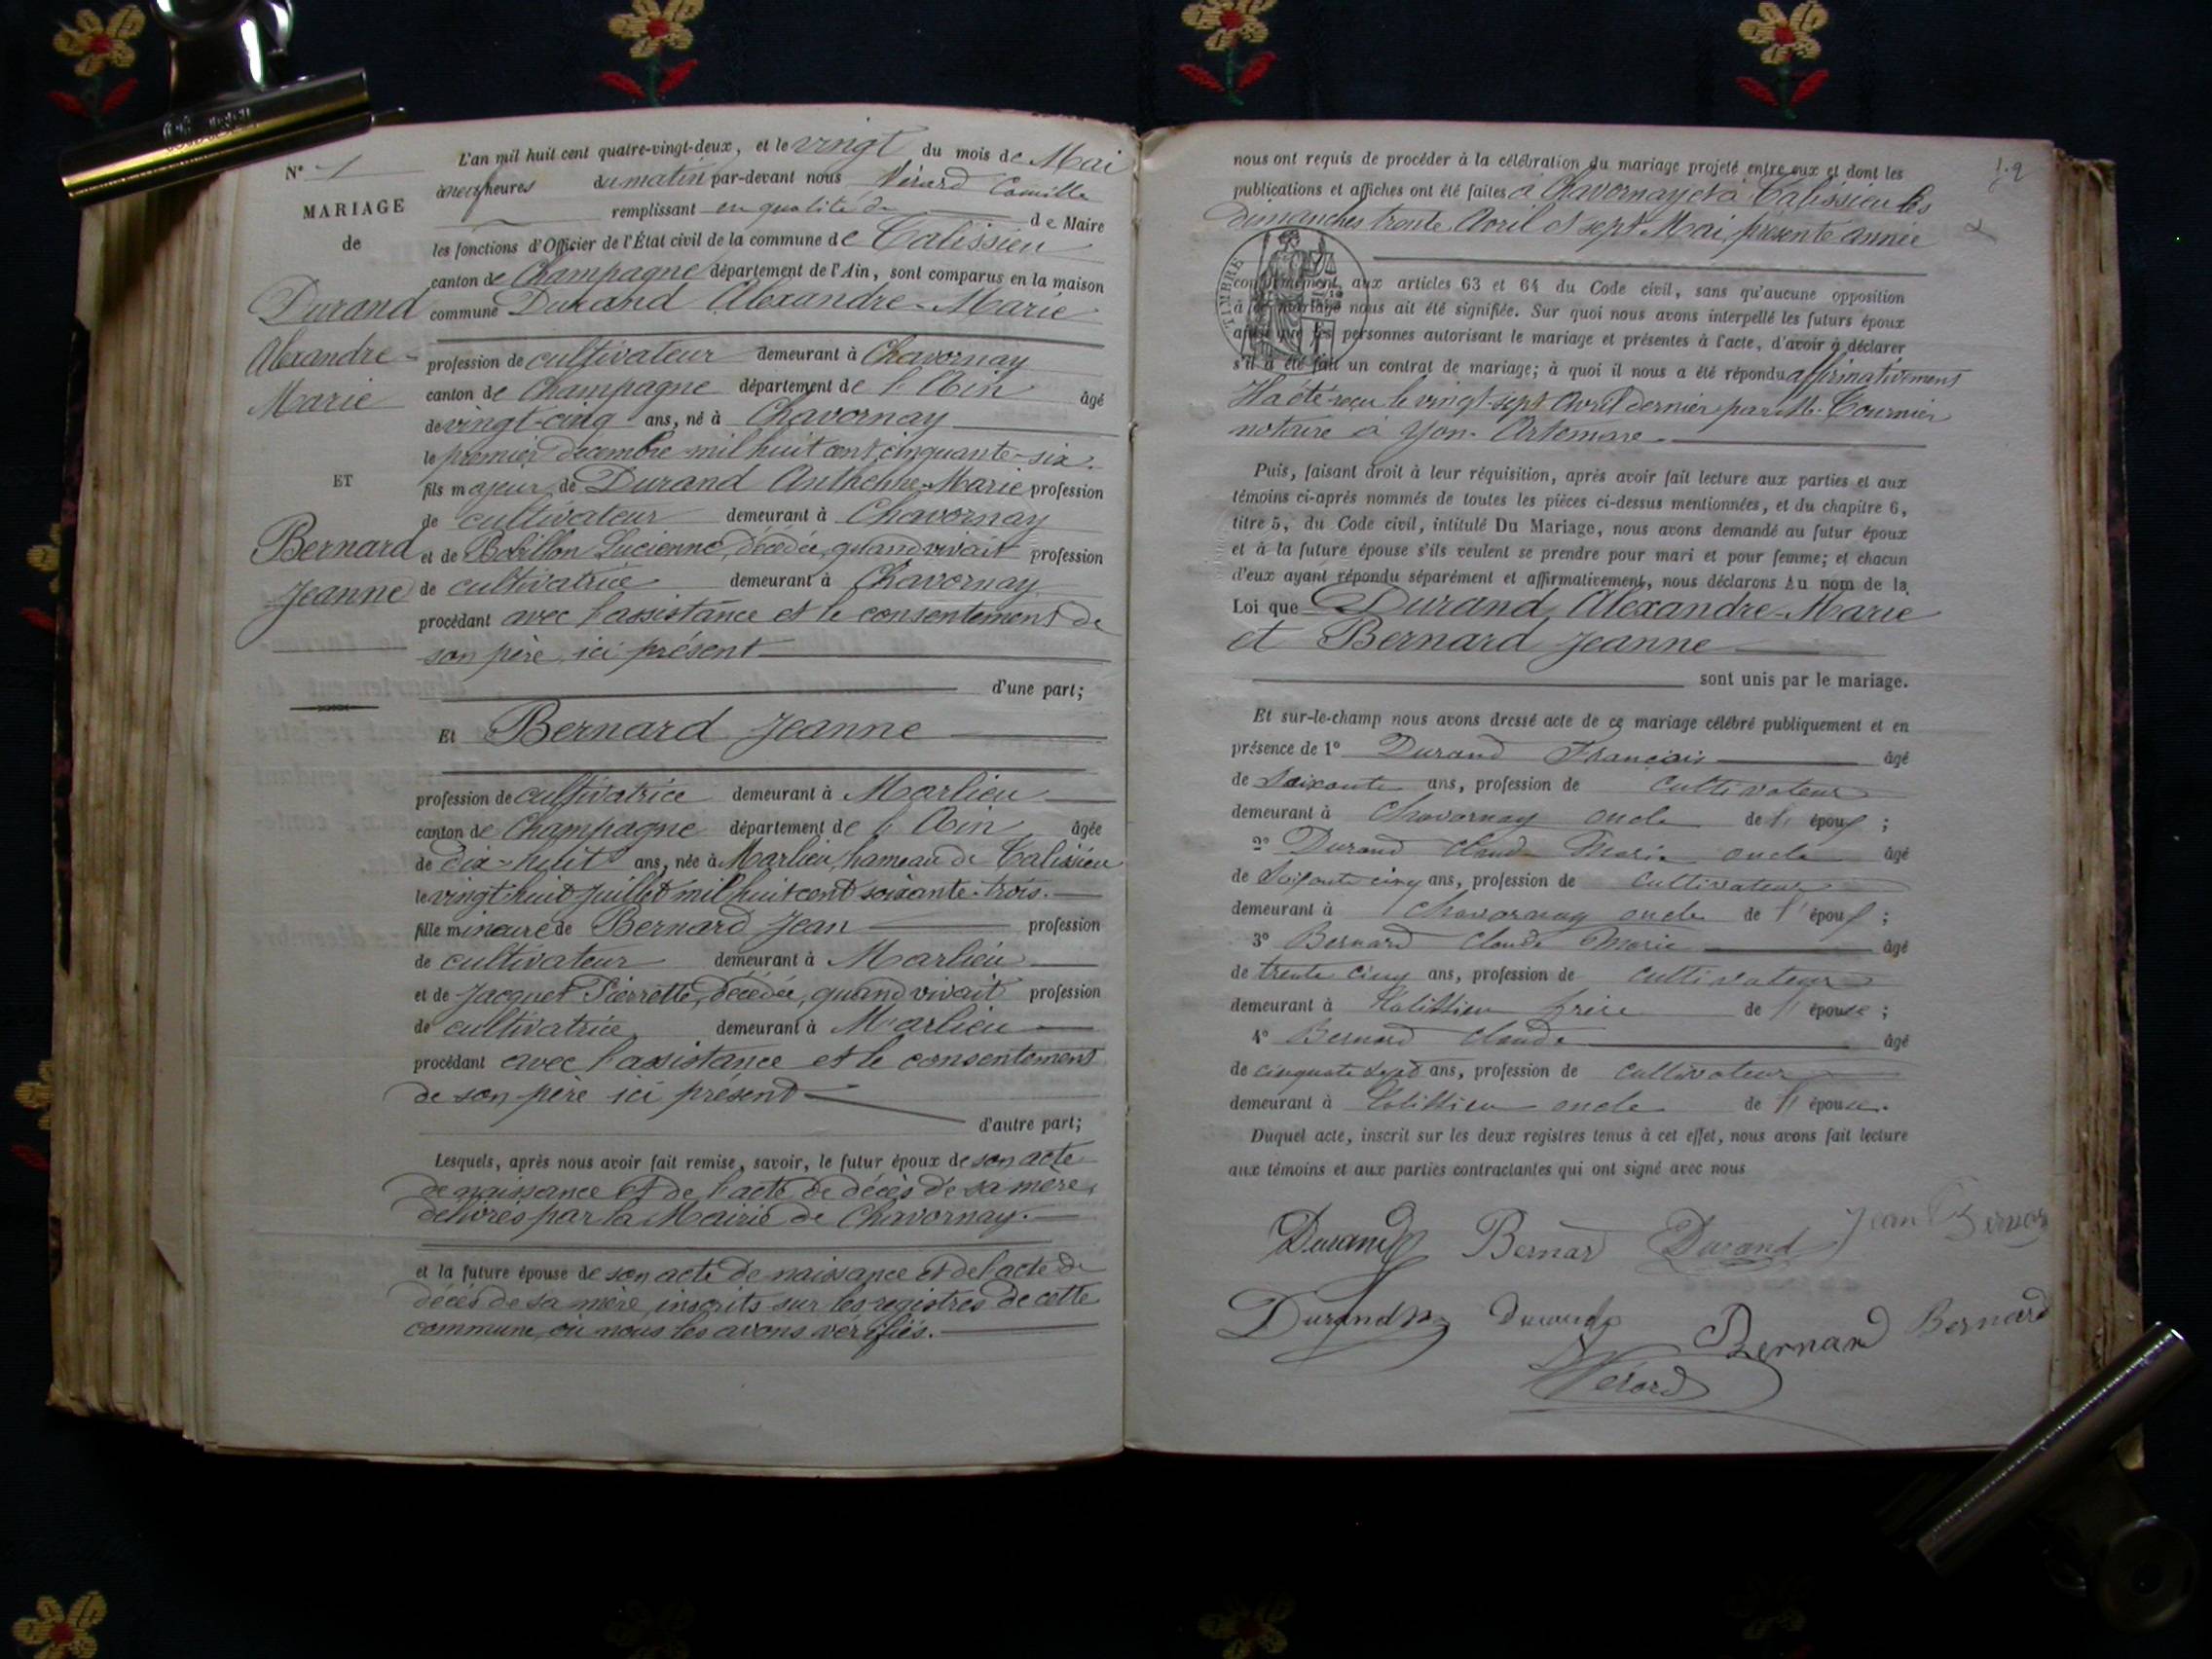 N° 1
MARIAGE
de
Durand
Alexandre-
Marie
ET
Bernard
Jeanne
L'an mil huit cent quatre-vingt-deux, et le vingt du mois de Mai
à neuf heures du matin par-devant nous Vérard Camille
remplissant en qualité de de Maire
les fonctions d'Officier de l'État civil de la commune de Talissieu
canton de Champagne département de l'Ain, sont comparus en la maison
commune Durand Alexandre-Marie
profession de cultivateur demeurant à Chavornay
canton de Champagne département de l'Ain âgé
de vingt-cinq ans, né à Chavornay
le premier décembre mil huit cent cinquante-six.
fils majeur de Durand Anthelme-Marie profession
de cultivateur demeurant à Chavornay
et de Bobillon Lucienne, décédée, quand vivait profession
de cultivatrice demeurant à Chavornay
procédant avec l'assistance et le consentement de
son père ici présent
d'une part;
Et Bernard Jeanne
profession de cultivatrice demeurant à Marlieu
canton de Champagne département de l'Ain âgée
de dix-huit ans, née à Marlieu, hameau de Talissieu
le vingt-huit Juillet mil huit cent soixante-trois.
fille mineure de Bernard Jean profession
de cultivateur demeurant à Marlieu
et de Jacquet Pierrette, décédée, quand vivait profession
de cultivatrice demeurant à Marlieu
procédant avec l'assistance et le consentement
de son père ici présent
d'autre part;
Lesquels, après nous avoir fait remise, savoir, le futur époux de son acte
de naissance et de l'acte de décès de sa mère,
délivrés par la Mairie de Chavornay.
et la future épouse de son acte de naissance et de l'acte de
décès de sa mère, inscrits sur les registres de cette
commune, où nous les avons vérifiés.
nous ont requis de procéder à la célébration du mariage projeté entre eux et dont les
publications et affiches ont été faites à Chavornay et à Talissieu les
dimanches trente Avril et sept Mai, présente année
TIMBRE
conformément aux articles 63 et 64 du Code civil, sans qu'aucune opposition
à ce mariage nous ait été signifiée. Sur quoi nous avons interpellé les futurs époux
ainsi que les personnes autorisant le mariage et présentes à l'acte, d'avoir à déclarer
s'il a été fait un contrat de mariage; à quoi il nous a été répondu affirmativement
Il a été reçu le vingt-sept Avril dernier par M. Tournier
notaire à Yon-Artemare.
Puis, faisant droit à leur réquisition, après avoir fait lecture aux parties et aux
témoins ci-après nommés de toutes les pièces ci-dessus mentionnées, et du chapitre 6,
titre 5, du Code civil, intitulé Du Mariage, nous avons demandé au futur époux
et à la future épouse s'ils veulent se prendre pour mari et pour femme; et chacun
d'eux ayant répondu séparément et affirmativement, nous déclarons Au nom de la
Loi que Durand Alexandre-Marie
et Bernard Jeanne
sont unis par le mariage.
Et sur-le-champ nous avons dressé acte de ce mariage célébré publiquement et en
présence de 1° Durand Francois âgé
de Soixante ans, profession de cultivateur
demeurant à Chavornay oncle de l' époux ;
2° Durand Claude Marie oncle âgé
de Soixante cinq ans, profession de cultivateur
demeurant à Chavornay oncle de l' époux ;
3° Bernard Claude Marie âgé
de trente cinq ans, profession de cultivateur
demeurant à Talissieu frère de l' épouse ;
4° Bernard Claude âgé
de cinquante sept ans, profession de cultivateur
demeurant à Talissieu oncle de l' épouse.
Duquel acte, inscrit sur les deux registres tenus à cet effet, nous avons fait lecture
aux témoins et aux parties contractantes qui ont signé avec nous
Durand Bernard Durand Jean Bernard
Durand Durand Bernard Bernard
Vérard